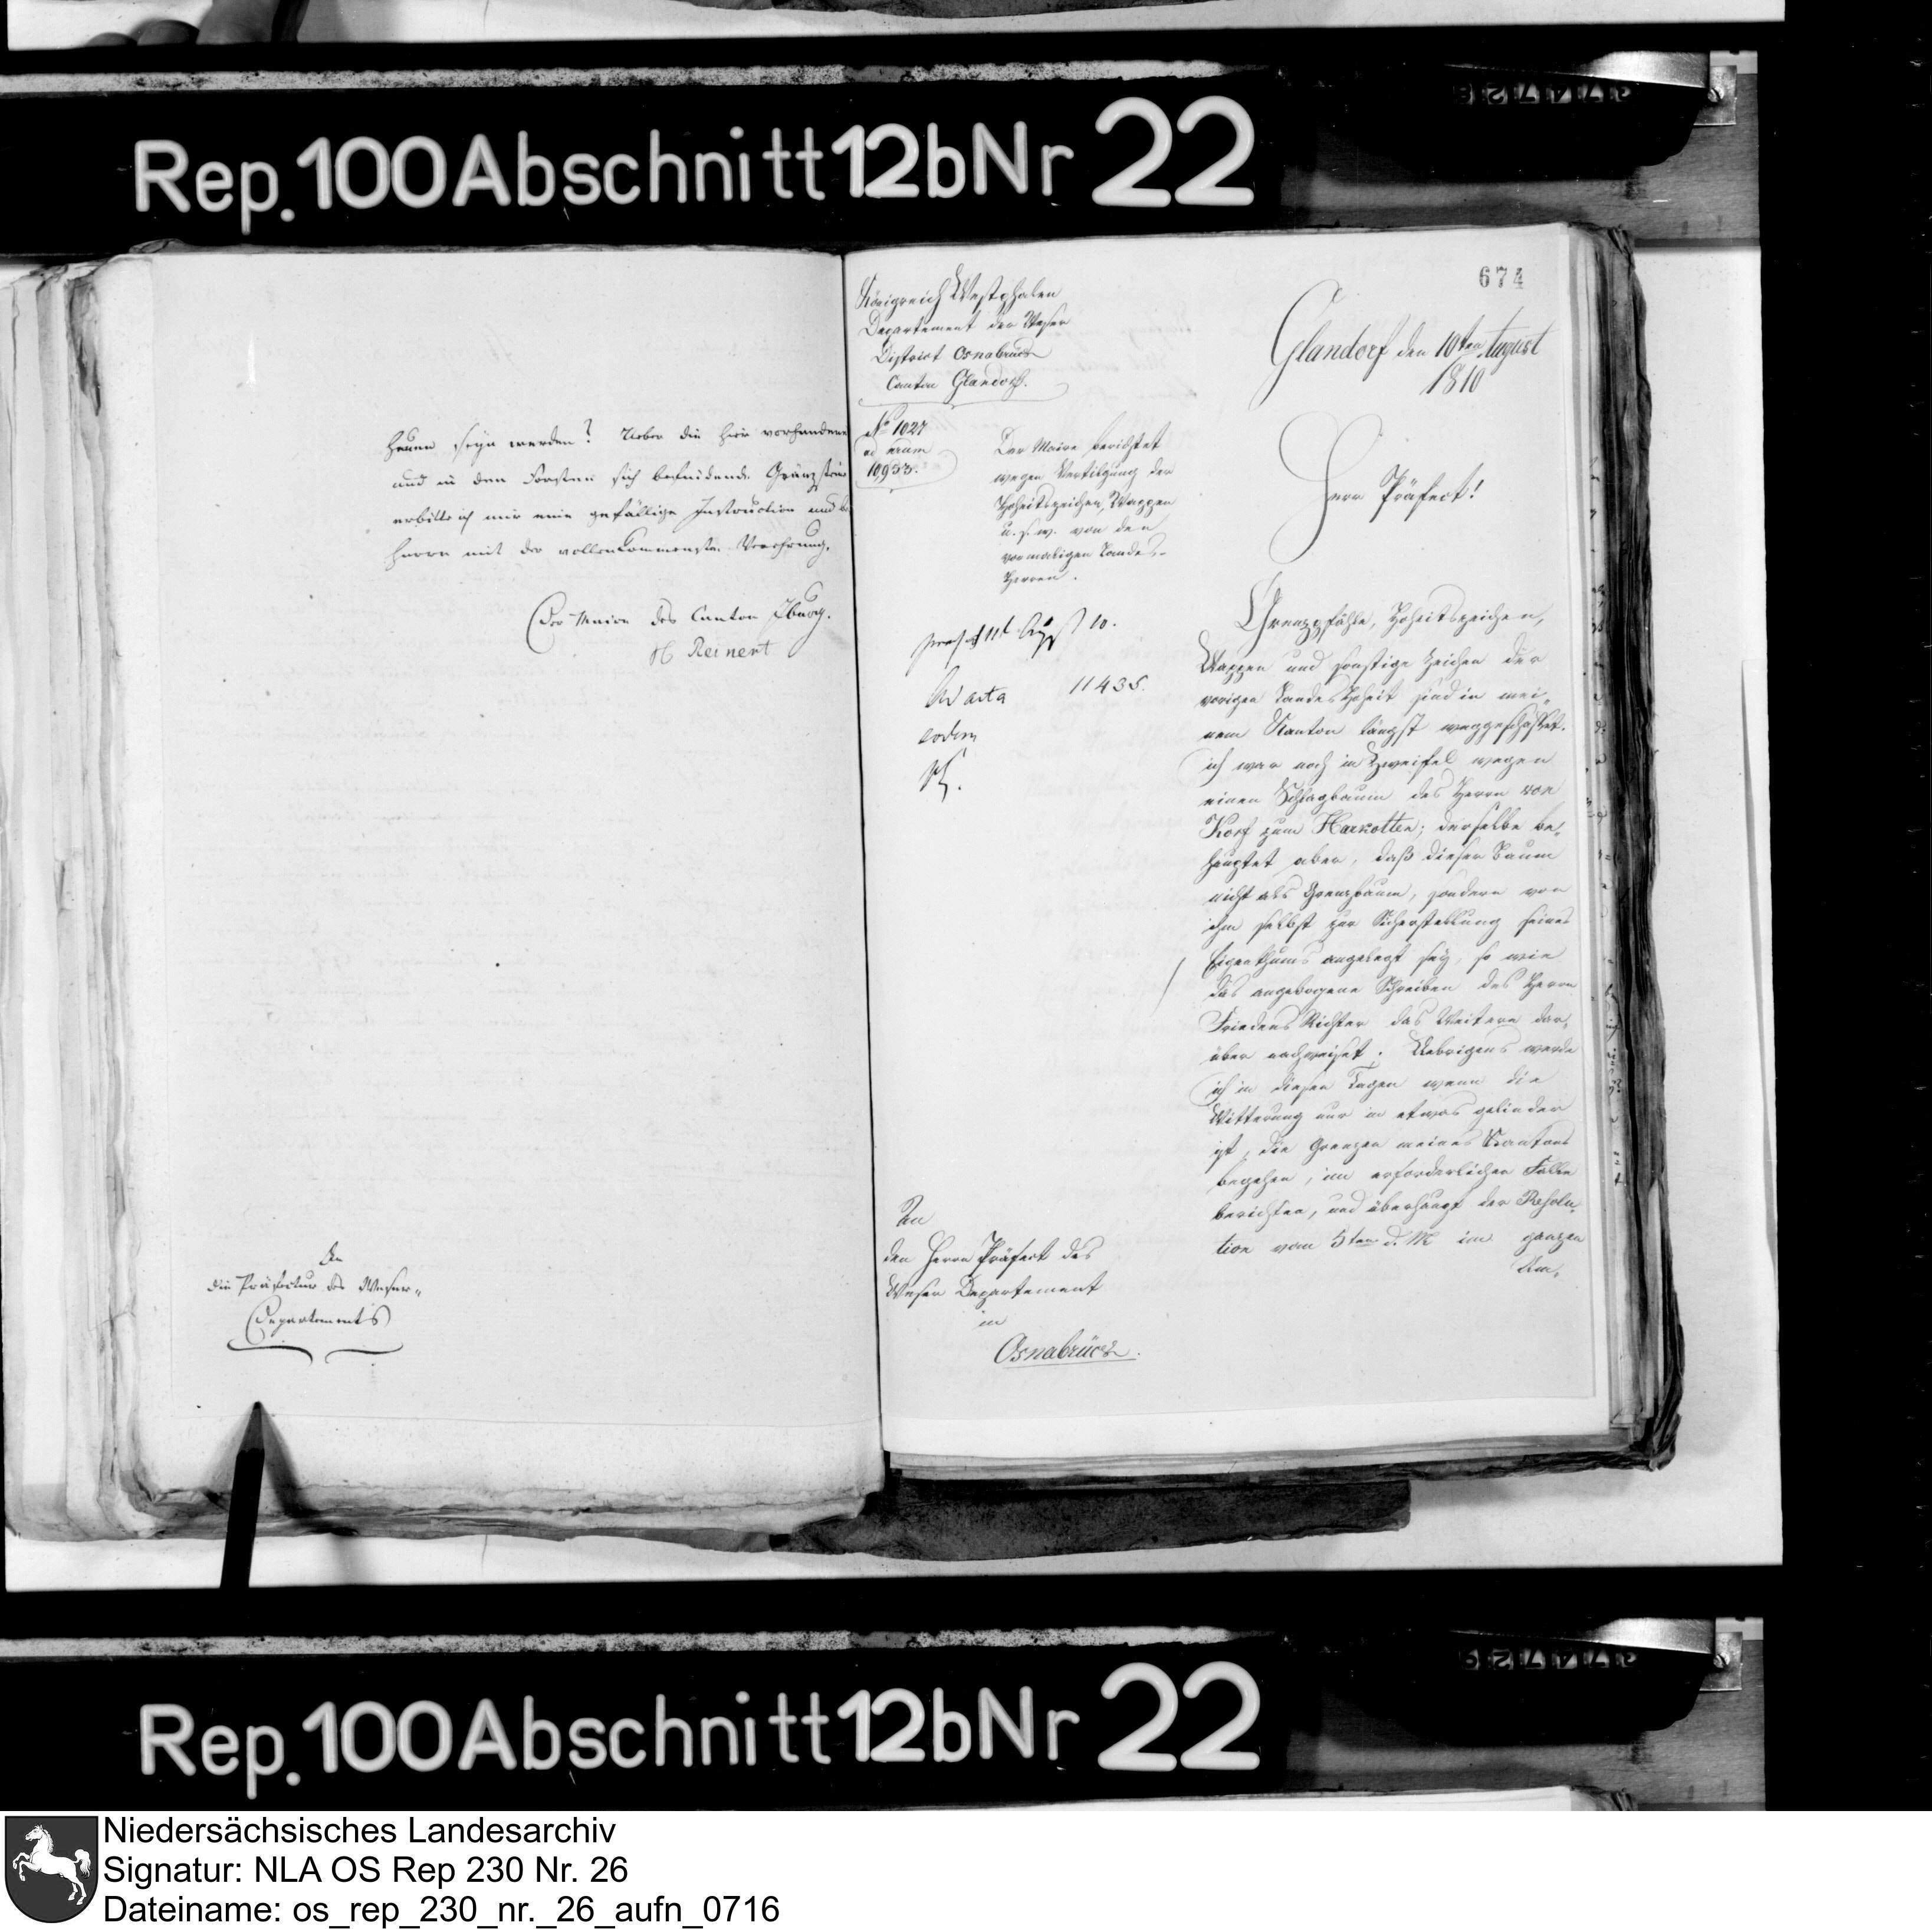 Rep. 100 Abschnitt 12b Nr 22
hauen seyn werden? Ueber die hier vorhandene
und in den Forsten sich befindende Gränzstein
erbitte ich mir eine gefällige Instruction und
harre mit der vollenkommensten Verehrung.
Der Maire des Canton Iburg.
H Reinert
An
die Präfectur des Weser-
Departements
674
Königreich Westphalen
Departement der Weser
District Osnabrück
Canton Glandorf.
No 1027
ad num
10,955.
Der Maire berichtet
wegen Vertilgung der
Hoheitszeichen, Wappen
u. s. w. von den
vormaligen Landes-
Herren.
Glandorf den 10ten August
1810
Herr Präfect!
praes. 11t Aug 10.
Ad acta 11435.
eodem
Grenzpfähle, Hoheitszeichen,
Wappen und sonstige Zeichen der
vorigen Landeshoheit sind in mei-
nem Kanton längst weggeschafft.
ich war noch in Zweifel wegen
einen Schlagbaum des Herrn von
Korf zum Harkotten; derselbe be-
hauptet aber, daß dieser Baum
nicht als Grenzbaum, sondern von
ihm selbst zur Sicherstellung seines
Eigenthums angelegt sey, so wie
das angebogene Schreiben des Herrn
Friedens Richter das Weitere dar-
über nachweiset. Uebrigens werde
ich in diesen Tagen wenn die
Witterung nur in etwas gelinder
ist, die Grenzen meines Kantons
begehen, im erforderlichen Falle
berichten, und überhaupt der Resolu-
tion vom 5ten d. M im ganzen
An
den Herrn Präfect des
Weser Departement
in
Osnabrück.
Rep. 100 Abschnitt 12b Nr 22
Niedersächsisches Landesarchiv
Signatur: NLA OS Rep 230 Nr. 26
Dateiname: os_rep_230_nr._26_aufn_0716